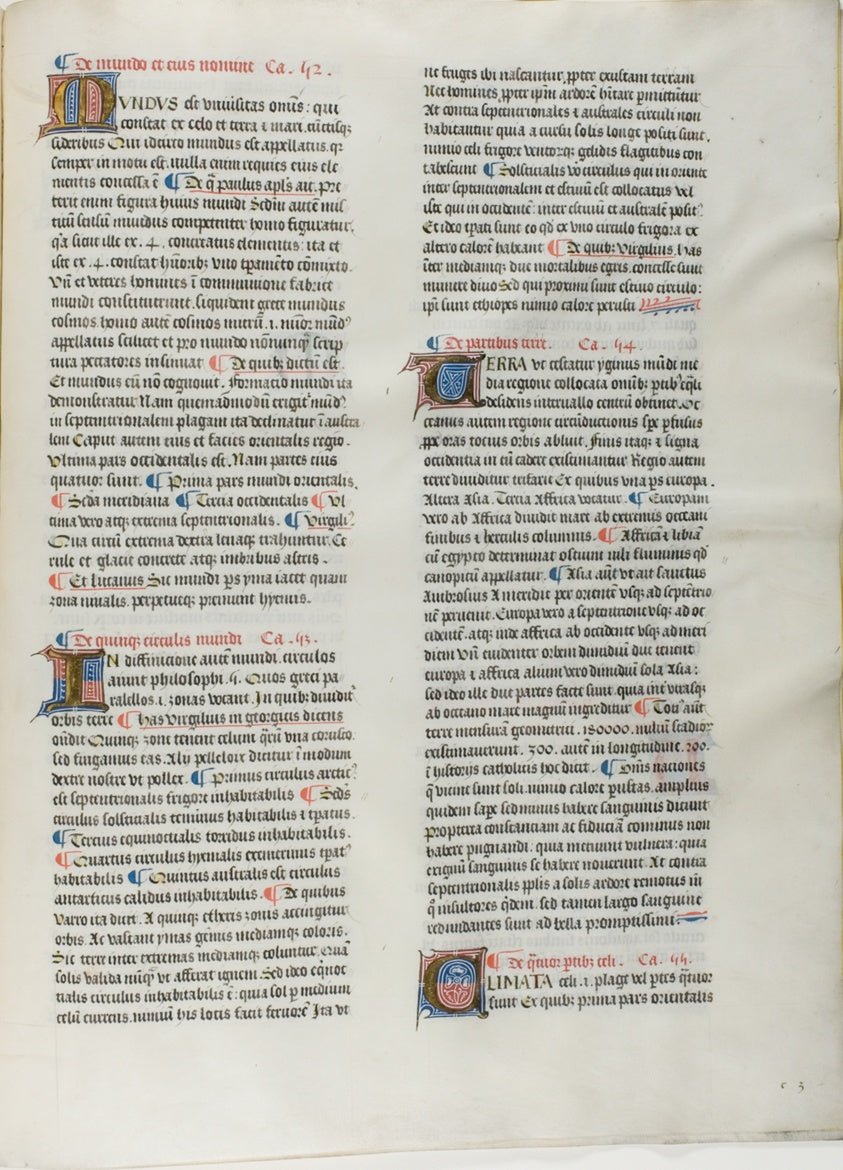 ¶ De mundo et eius nomine Ca. 52.
MVNDVS est vniuersitas omnis: qui
constat ex celo et terra ⁊ mari. cunctisqꝫ
sideribus Qui idcirco mundus est appellatus. qꝛ
semper in motu est. nulla enim requies eius ele
mentis concessa ē ¶ De q̄ paulus apl's ait. Pre
terit enim figura huius mundi Sedm̄ autē mis
ticū sensū mundus competenter homo figuratur.
qꝛ sicut ille ex .4. concreatus elementis: ita et
iste ex .4. constat hūoribꝫ vno tꝑamēto cōmixto.
Vn̄ et veteres homines ī communione fabrice
mundi constituerunt. siquidem grece mundus
cosmos. homo autē cosmos micrū .i. minor mūdꝰ
appellatus Scilicet et pro mundo nōnumqꝫ scrip
tura peccatores insinuat ¶ De quibꝫ dictū est.
Et mundus eū nō cognouit. Formacio mundi ita
demonstratur Nam quemadmodū erigit mūdꝰ
in septentrionalem plagam ita declinatur ī austra
lem Caput autem eius et facies orientalis regio.
Vltima pars occidentalis est. Nam partes eius
quatuor sunt. ¶ Prima pars mundi orientalis.
¶ Scd̄a meridiana ¶ Tercia occidentalis ¶ Vl
tima vero atqꝫ extrema septentrionalis. ¶ Virgiliꝰ
Qua circū extrema dextra leuaqꝫ trahuntur. Ce
rule et glacie concrete atqꝫ imbribus astris.
¶ Et lucanus Sic mundi ꝑs yma iacet quam
zona niualis. perpetueqꝫ premunt hyemis.
¶ De quinqꝫ circulis mundi Ca. 53.
IN diffinicione autē mundi. circulos
aiunt philosophi .5. Quos greci pa
ralellos .i. zonas vocant. In quibꝫ diuiditᷣ
orbis terre ¶ Has virgilius in georgicis dicens
on̄dit Quinqꝫ zone tenent celum qͣrū vna corusco.
sed fingamus eas. Aly pelleloir dicitur ī modum
dextre nostre vt pollex. ¶ Primus circulus arcticꝰ
est septentrionalis frigore inhabitabilis ¶ Sc̄ds
circulus solsticialis teminus habitabilis ⁊ tꝑatus.
¶ Tercius equinoctialis torridus inhabitabilis.
¶ Quartus circulus hyemalis exemerinus tꝑatꝰ
habitabilis ¶ Quintus australis est circulus
antarticus calidus inhabitabilis. ¶ De quibus
varro ita dicit. A quinqꝫ etheris zonis accingitur
orbis. Ac vastant ymas gemus mediamqꝫ coloris.
Sic terre inter extremas mediamqꝫ coluntur. Quā
solis valida nūqꝫ vt afferat ignem. Sed ideo eq̄noc
tialis circulus inhabitabilis ē: quia sol ꝑ medium
celū currens. nimiū his locis facit feruorē Ita vt
ne fruges ibi nascantur, ꝓpter exustam terram
Nec homines, ꝓpter ipm̄ ardorē hītare ꝑmittūtur.
At contra septentrionales ⁊ australes circuli non
habitantur quia a cursu solis longe positi sunt.
nimio celi frigore ventorqꝫ gelidis flagitibus con
tabescunt ¶ Solsticialis vo circulus qui in oriente
inter septentrionalem et estiuū est collocatus vel
iste qui in occidentē: inter estiuū et australē positꝰ
Et ideo tꝑati sunt eo qd̄ ex vno circulo frigora ex
altero calorē habeant ¶ De quibꝫ Virgilius. has
īter mediamqꝫ due mortalibus egris. concesse sunt
munere diuo Sed qui proximi sunt estiuo circulo:
ipī sunt ethiopes nimio calore perusti
¶ De partibus terre. Ca. 54.
TERRA vt testatur yginus mūdi me
dia regione collocata omnibꝫ ꝑtibꝫ eq̄li
desidens interuallo centrū obtinet. Oc
ceanus autem regione circūductionis spe ꝑfusus
ꝓpe oras tocius orbis abluit. finis itaqꝫ ⁊ signa
occidentia in eū cadere existimantur Regio autem
terre diuiditur trifarie Ex quibus vna ꝑs europa.
Altera Asia. Tercia Affrica vocatur. ¶ Europam
vero ab Affrica diuidit mare ab extremis occeani
finibus ⁊ herculis columnis. ¶ Affricā ⁊ libiā
cū egypto determinat ostium nili fluminis qd̄
canopicū appellatur. ¶ Asia aut̄ vt ait sanctus
Ambrosius A meridie per orientē vsqꝫ ad septētrio
nē peruenit. Europa vero a septentrione vsqꝫ ad oc
cidentē. atqꝫ inde affrica ab occidente vsqꝫ ad meri
diem Vn̄ euidenter orbem dimidiū due tenent
europa ⁊ affrica alium vero dimidiū sola Asia:
sed ideo ille due partes facte sunt. quia int̄ vtrasqꝫ
ab occeano mare magnū ingreditur ¶ Totiꝰ aut̄
terre mensurā geometrici .180000. milium stadioꝝ
existimauerunt. 300. autē in longitudine. 200.
ī historijs catholicis hoc dicit. ¶ Om̄s naciones
q̄ vicine sunt soli. nimio calore ꝑustas. amplius
quidem sape sed minus habere sanguinis dicunt
Propterea constanciam ac fiduciā cominus non
habere pugnandi. quia metuunt vulnera: quia
exiguū sanguinis se habere nouerunt. At contra
septentrionalis pp̄lis a solis ardore remotus in
q̊ insultores qd̄em. sed tamen largo sanguine
redundantes sunt ad bella promptissimi
¶ De q̄tuor ꝑtibꝫ celi. Ca. 55.
CLIMATA celi .i. plage vel ꝑtes q̄tuor
sunt Ex quibꝫ prima pars orientalis
c 3